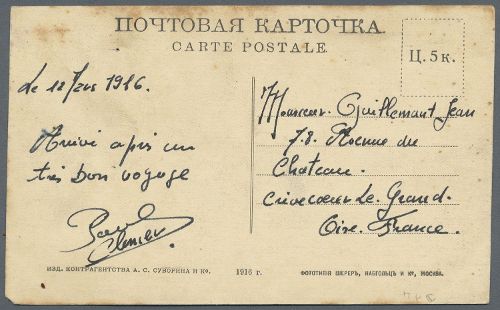 ПОЧТОВАЯ КАРТОЧКА.
CARTE POSTALE.
Ц. 5 к.
Le 1916.
Arrivé après un
très bon voyage
Paul
Monsieur Guillemant Jean
78 Avenue du
Chateau.
Crèvecœur Le Grand.
Oise. France.
ИЗД. КОНТРАГЕНТСТВА А. С. СУВОРИНА И Ко.
1916 г.
ФОТОТИПІЯ ШЕРЕРЪ, НАБГОЛЬЦЪ И Ко, МОСКВА.